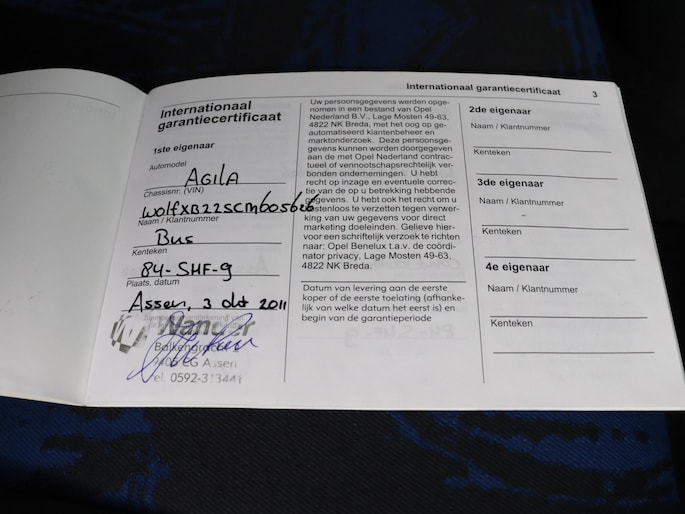 Internationaal garantiecertificaat 3
Internationaal
garantiecertificaat
1ste eigenaar
Automodel
AGILA
Chassisnr. (VIN)
WOLFXB22SCM605626
Naam / Klantnummer
Bus
Kenteken
84-SHF-9
Plaats, datum
Assen, 3 okt 2011
Nander
Balkengracht
9405 CG Assen
Tel. 0592-313441
Uw persoonsgegevens werden opge-
nomen in een bestand van Opel
Nederland B.V., Lage Mosten 49-63,
4822 NK Breda, met het oog op ge-
automatiseerd klantenbeheer en
marktonderzoek. Deze persoonsge-
gevens kunnen worden doorgegeven
aan de met Opel Nederland contrac-
tueel of vennootschapsrechtelijk ver-
bonden ondernemingen. U hebt
recht op inzage en eventuele correc-
tie van de op u betrekking hebbende
gegevens. U hebt ook het recht om u
kostenloos te verzetten tegen verwer-
king van uw gegevens voor direct
marketing doeleinden. Gelieve hier-
voor een schriftelijk verzoek te richten
naar: Opel Benelux t.a.v. de coördi-
nator privacy, Lage Mosten 49-63,
4822 NK Breda.
Datum van levering aan de eerste
koper of de eerste toelating (afhanke-
lijk van welke datum het eerst is) en
begin van de garantieperiode
2de eigenaar
Naam / Klantnummer
Kenteken
3de eigenaar
Naam / Klantnummer
Kenteken
4e eigenaar
Naam / Klantnummer
Kenteken